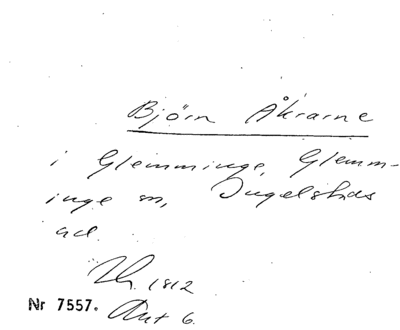 Björn Åkrarne
i Glemminge, Glemm-
inge sn, Ingelstads
hd.
1812
Nr 7557. Akt 6.